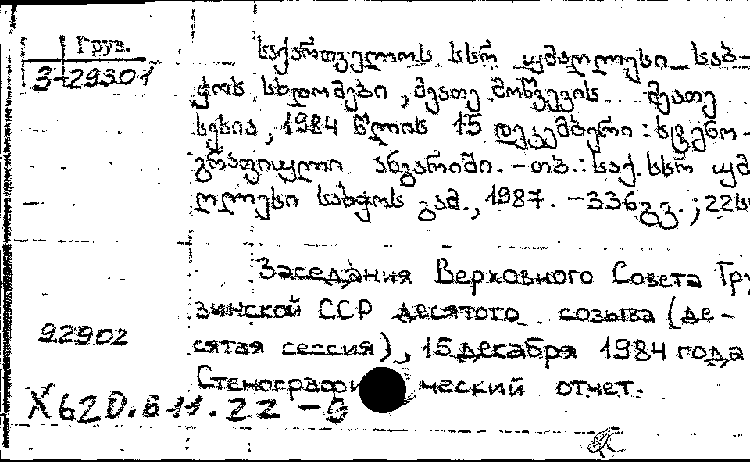 Груз.
3-29301
საქართველოს სსრ უმაღლესი საბ-
ჭოს სხდომები, მეათე მოწვევის მეათე
სესია, 1984 წლის 15 დეკემბერი: სტენო-
გრაფიული ანგარიში. - თბ.: საქ. სსრ უმ
ღლესი საბჭოს გამ., 1987. - 336გვ.; 22
Заседания Верховного Совета Гру
зинской ССР десятого созыва (де-
92902
сятая сессия), 15 декабря 1984 года
Стенографический отчет.
X620.611.22 - 6